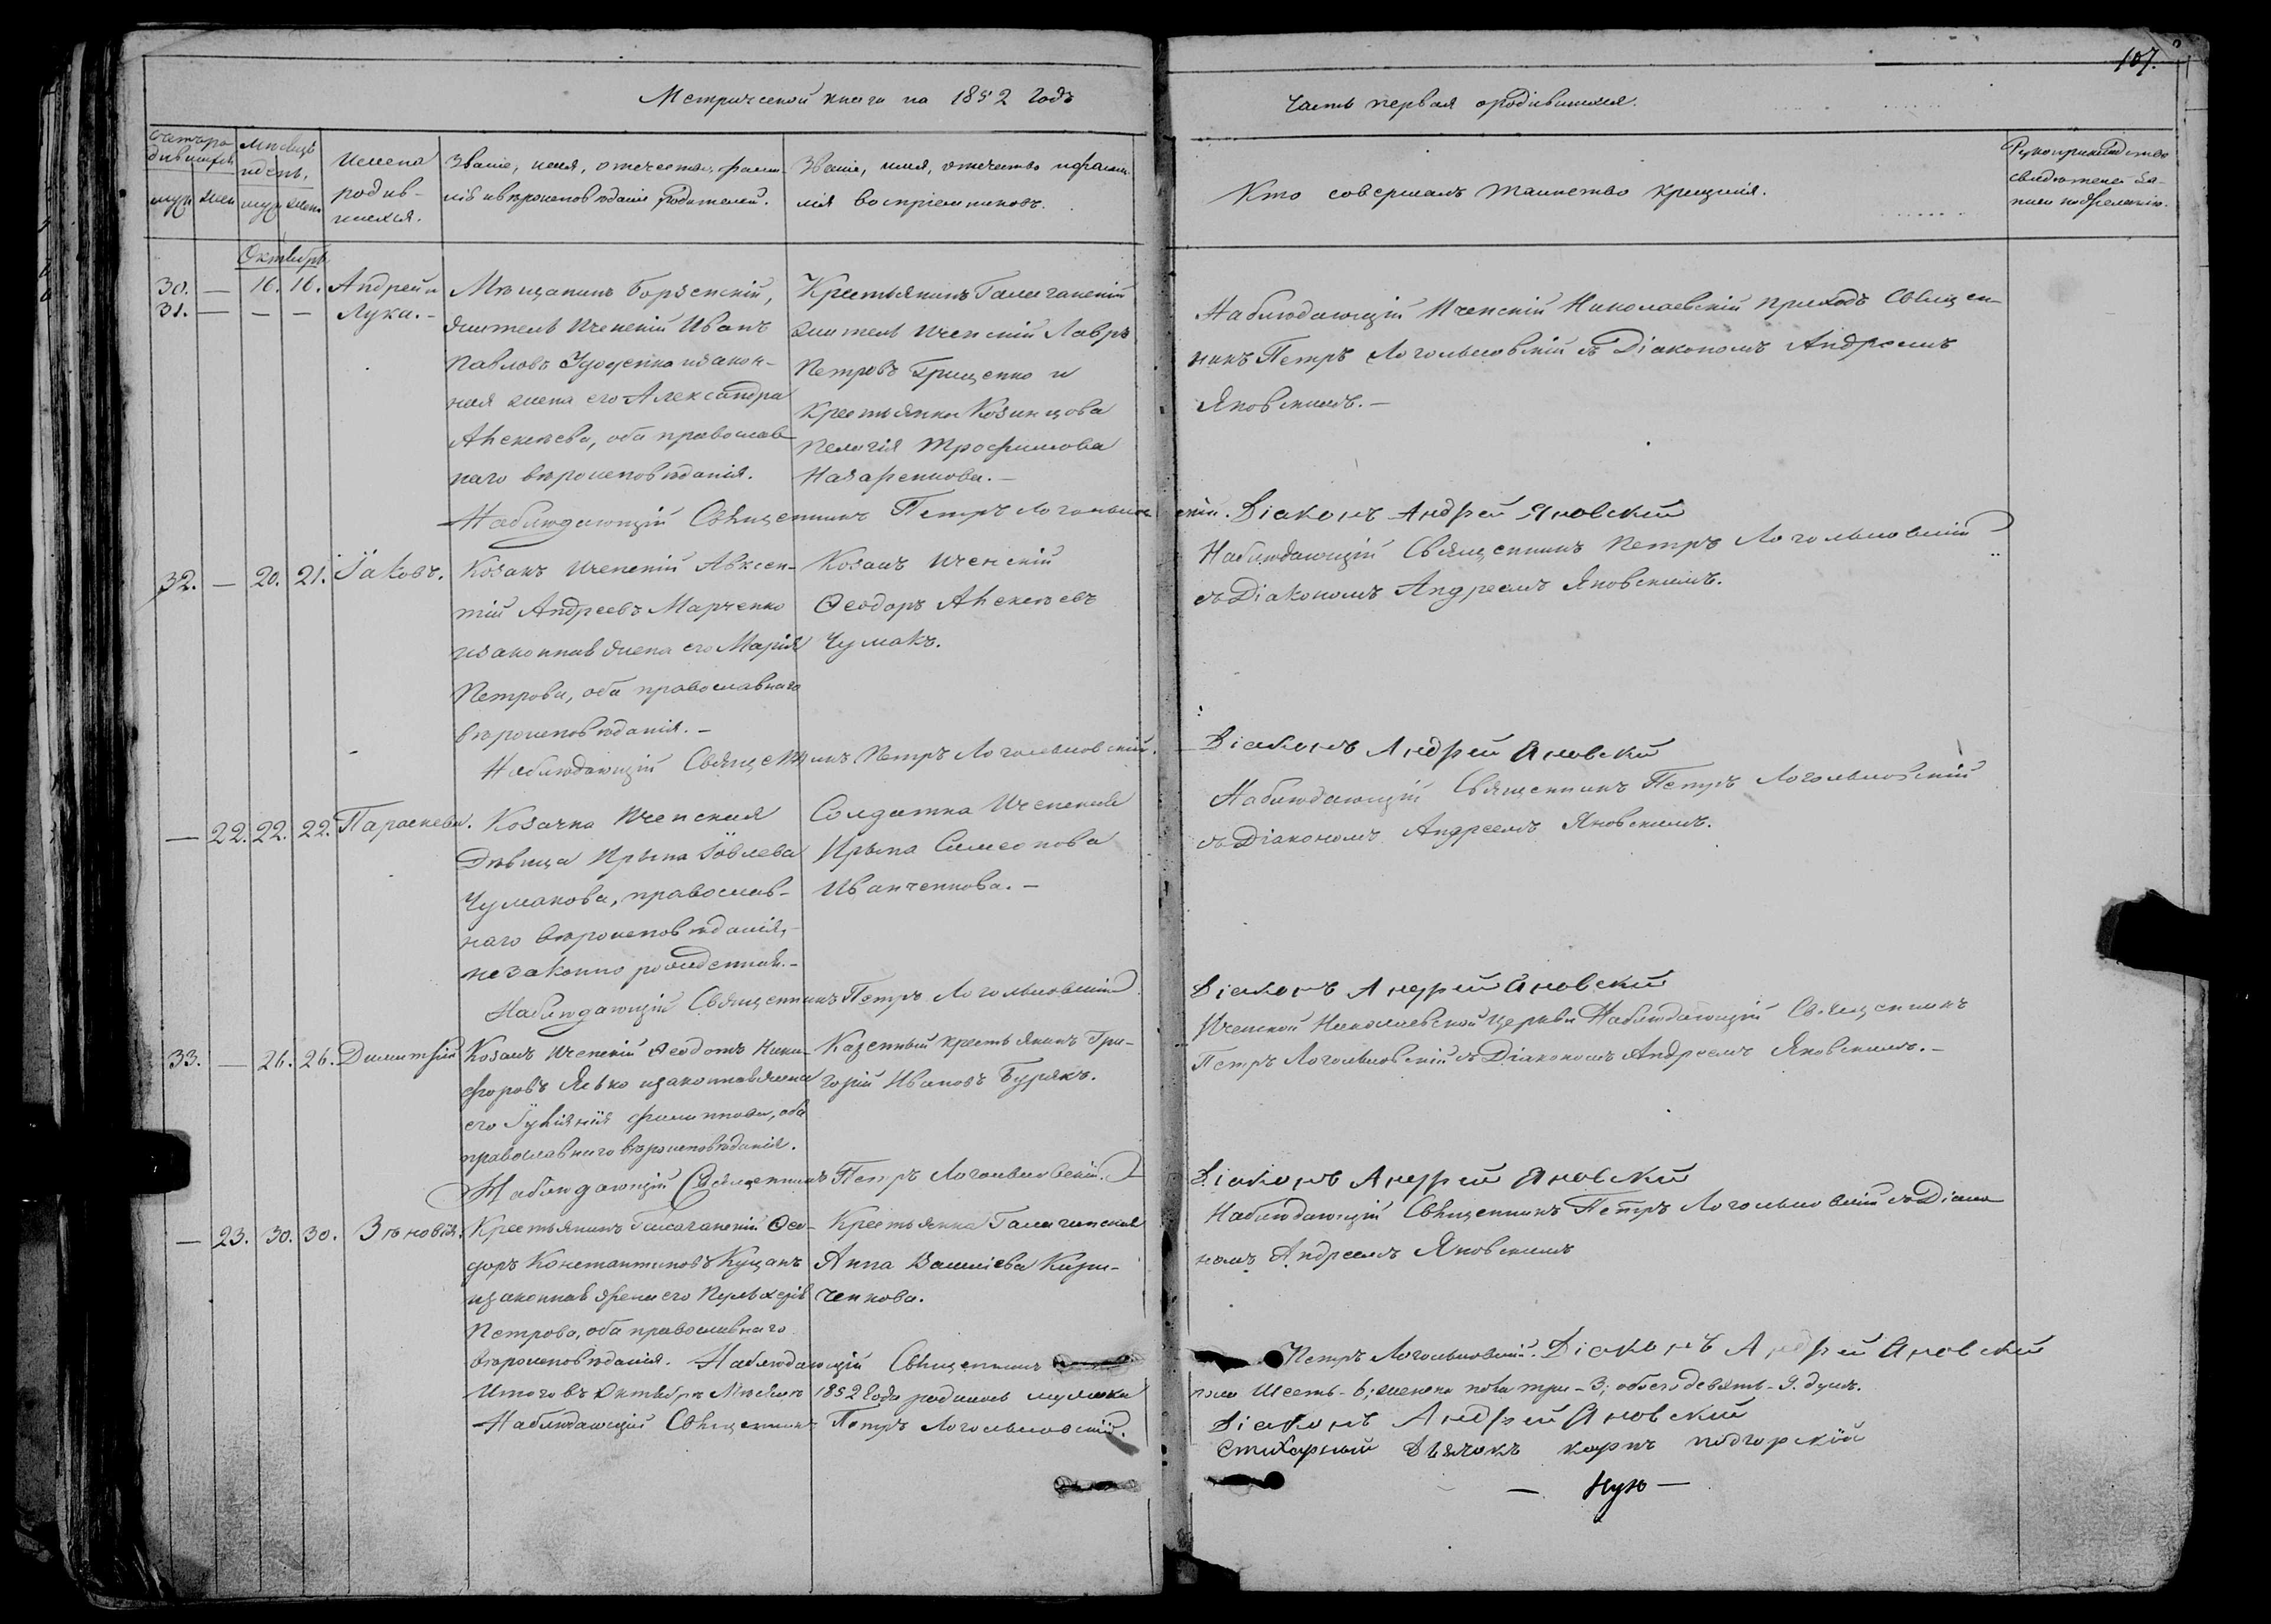 107.
Метрической книги на 1852 годъ
Часть первая о родившихся.
Счетъ ро-
дившихся
муж. жен.
Мѣсяцъ
и день.
муж. жен.
Имена
родив-
шихся.
Званіе, имя, отечество, фами-
лія и вѣроисповѣданіе родителей.
Званіе, имя, отечество и фами-
лія воспріемниковъ.
Кто совершалъ таинство крещенія.
Рукоприкладство
свидѣтелей за-
писи по желанію.
Октябрь
30. — 16. 16. Андрей и
31. — — — Лука. –
Мѣщанинъ Борзенскій,
житель Иченскій Иванъ
Павловъ и закон-
ная жена его Александра
Алексѣева, оба православ-
наго вѣроисповѣданія.
Крестьянинъ Галаганскій
житель Иченскій Лавръ
Петровъ Грищенко и
Крестьянка Козинцова
Пелагія Трофимова
Назаренкова. –
Наблюдающій Иченскій Николаевскій приходъ Священ-
никъ Петръ Логольновскій съ Діакономъ Андреемъ
Яновскимъ. –
Наблюдающій Священникъ Петръ Логольновскій. Діаконъ Андрей Яновскій
32. — 20. 21. Іаковъ.
Козакъ Иченскій Авксен-
тій Андреевъ Марченко
и законная жена его Марія
Петрова, оба православнаго
вѣроисповѣданія. –
Козакъ Иченскій
Ѳеодоръ Алексѣевъ
Чумакъ.
Наблюдающій Священникъ Петръ Логольновскій
съ Діакономъ Андреемъ Яновскимъ.
Наблюдающій Священникъ Петръ Логольновскій. Діаконъ Андрей Яновскій
— 22. 22. 22. Параскева.
Козачка Иченская
Дѣвица Ирина Іовлева
Чумакова, православ-
наго вѣроисповѣданія, –
незаконно рожденная. –
Солдатка Иченская
Ирина Симеонова
Иванченкова. –
Наблюдающій Священникъ Петръ Логольновскій
съ Діакономъ Андреемъ Яновскимъ.
Наблюдающій Священникъ Петръ Логольновскій Діаконъ Андрей Яновскій
33. — 26. 26. Димитрій
Козакъ Иченскій Ѳеодотъ Ники-
форовъ и законная жена
его Іуліянія Филиппова, оба
православнаго вѣроисповѣданія.
Казенный крестьянинъ Гри-
горій Ивановъ Бурякъ.
Иченской Николаевской Церкви Наблюдающій Священникъ
Петръ Логольновскій съ Діакономъ Андреемъ Яновскимъ. –
Наблюдающій Священникъ Петръ Логольновскій. Діаконъ Андрей Яновскій
— 23. 30. 30. Зѣновія.
Крестьянинъ Галаганскій Ѳео-
доръ Константиновъ Куцакъ
и законная жена его Пульхерія
Петрова, оба православнаго
вѣроисповѣданія.
Крестьянка Галаганская
Анна Василіева Кири-
ченкова.
Наблюдающій Священникъ Петръ Логольновскій съ Діако
номъ Андреемъ Яновскимъ
Наблюдающій Священникъ Петръ Логольновскій. Діаконъ Андрей Яновскій
Итого въ Октябрѣ Мѣсяцѣ 1852 Года родилось мужска
пола Шесть – 6; женска пола три – 3; обоего девять – 9. душъ.
Наблюдающій Священникъ Петръ Логольновскій. Діаконъ Андрей Яновскій
Стихарный Дьячокъ Карпъ Подгорскій